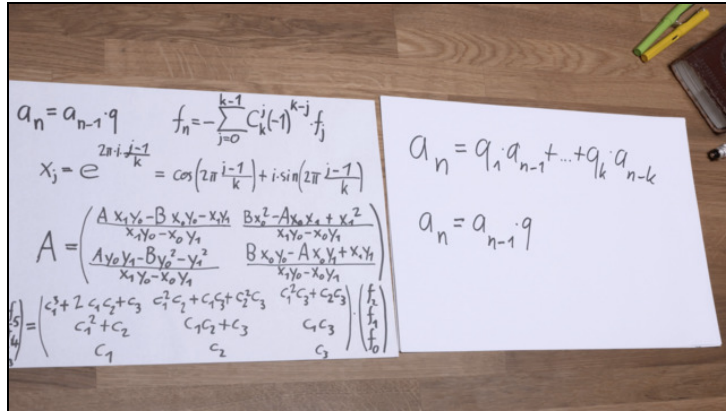 aₙ = aₙ₋₁·q
fₙ = -∑_{j=0}^{k-1} C_k^j (-1)^{k-j}·f_j
x_j = e^{2π·i·\frac{j-1}{k}} = cos(2π \frac{j-1}{k}) + i·sin(2π \frac{j-1}{k})
A = \begin{pmatrix} \frac{A x_1 y_0 - B x_0 y_0 - x_1 y_1}{x_1 y_0 - x_0 y_1} & \frac{B x_0^2 - A x_0 x_1 + x_1^2}{x_1 y_0 - x_0 y_1} \\ \frac{A y_0 y_1 - B y_0^2 - y_1^2}{x_1 y_0 - x_0 y_1} & \frac{B x_0 y_0 - A x_0 y_1 + x_1 y_1}{x_1 y_0 - x_0 y_1} \end{pmatrix}
\begin{pmatrix} 5 \\ 4 \\ 3 \end{pmatrix} = \begin{pmatrix} c_1^3 + 2 c_1 c_2 + c_3 & c_1^2 c_2 + c_1 c_3 + c_2^2 & c_1^2 c_3 + c_2 c_3 \\ c_1^2 + c_2 & c_1 c_2 + c_3 & c_1 c_3 \\ c_1 & c_2 & c_3 \end{pmatrix}·\begin{pmatrix} f_2 \\ f_1 \\ f_0 \end{pmatrix}
aₙ = q₁·aₙ₋₁ + ... + q_k·a_{n-k}
aₙ = aₙ₋₁·q